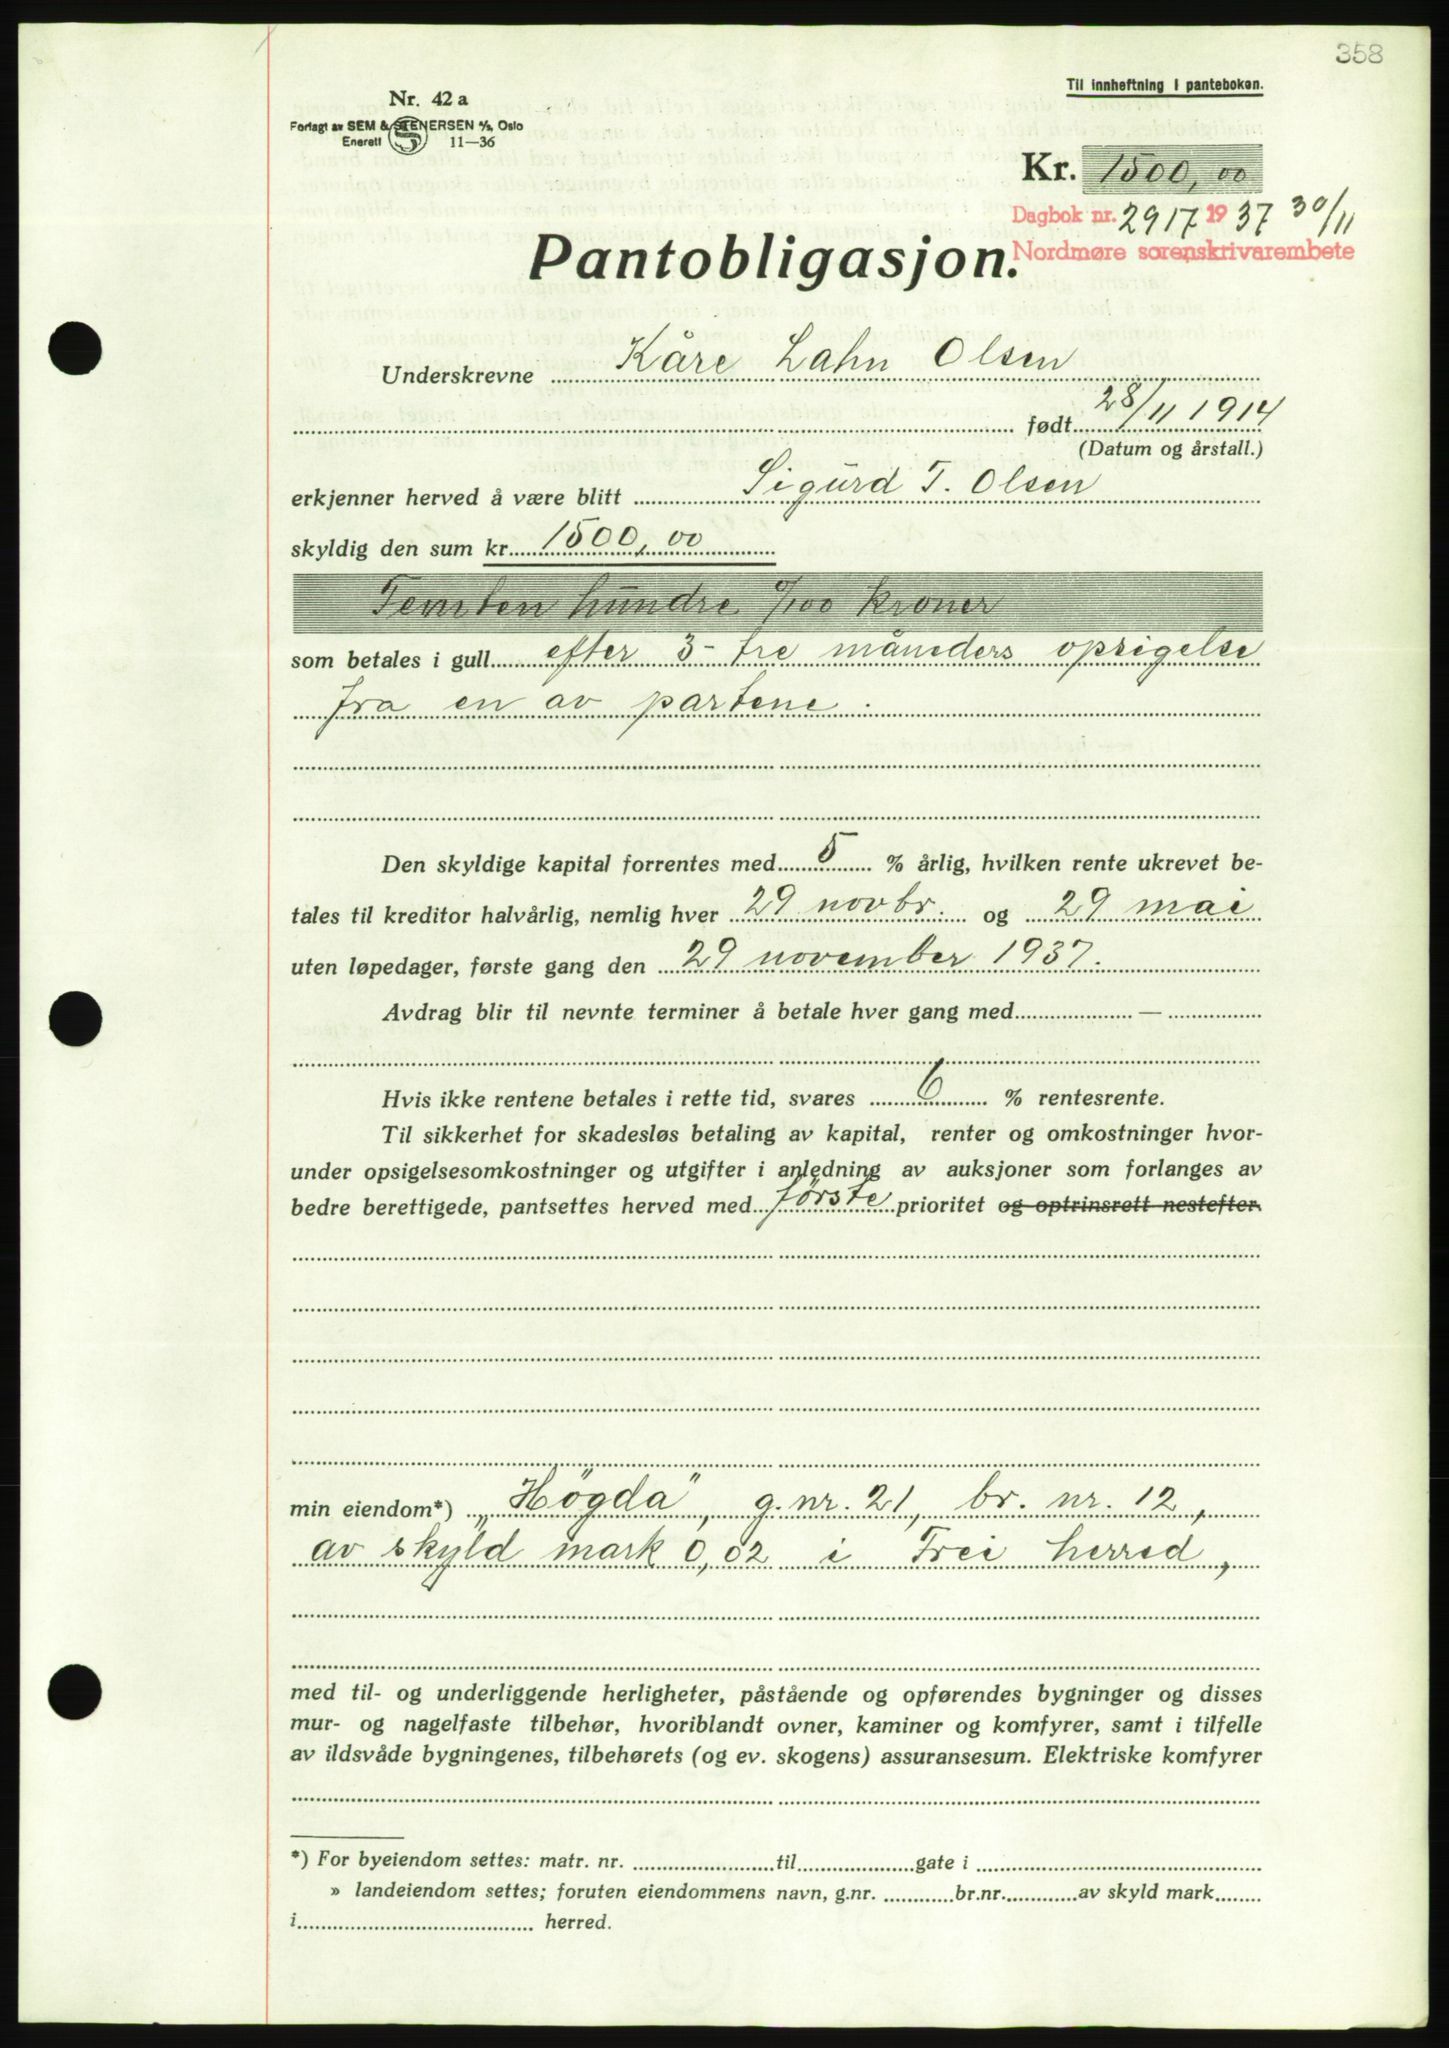 358
Til innheftning i panteboken.
Nr. 42 a
Forlagt av SEM & STENERSEN A/S, Oslo
Enerett 11—36
Kr. 1500,00
Dagbok nr. 2917 1937 30/11
Nordmøre sorenskrivarembete
Pantobligasjon.
Underskrevne Kåre Lahn Olsen
født 28/11 1914
(Datum og årstall.)
erkjenner herved å være blitt Sigurd T. Olsen
skyldig den sum kr. 1500,00
Femten hundre 0/100 kroner
som betales i gull efter 3- tre måneders opsigelse
fra en av partene.
Den skyldige kapital forrentes med 5 % årlig, hvilken rente ukrevet be-
tales til kreditor halvårlig, nemlig hver 29 novbr. og 29 mai
uten løpedager, første gang den 29 november 1937.
Avdrag blir til nevnte terminer å betale hver gang med —
Hvis ikke rentene betales i rette tid, svares 6 % rentesrente.
Til sikkerhet for skadesløs betaling av kapital, renter og omkostninger hvor-
under opsigelsesomkostninger og utgifter i anledning av auksjoner som forlanges av
bedre berettigede, pantsettes herved med første prioritet og optrinsrett nestefter.
min eiendom*) „Högda", g. nr. 21, br. nr. 12,
av skyld mark 0,02 i Frei herred,
med til- og underliggende herligheter, påstående og opførendes bygninger og disses
mur- og nagelfaste tilbehør, hvoriblandt ovner, kaminer og komfyrer, samt i tilfelle
av ildsvåde bygningenes, tilbehørets (og ev. skogens) assuransesum. Elektriske komfyrer
*) For byeiendom settes: matr. nr. til gate i
» landeiendom settes; foruten eiendommens navn, g.nr. br.nr. av skyld mark
i herred.